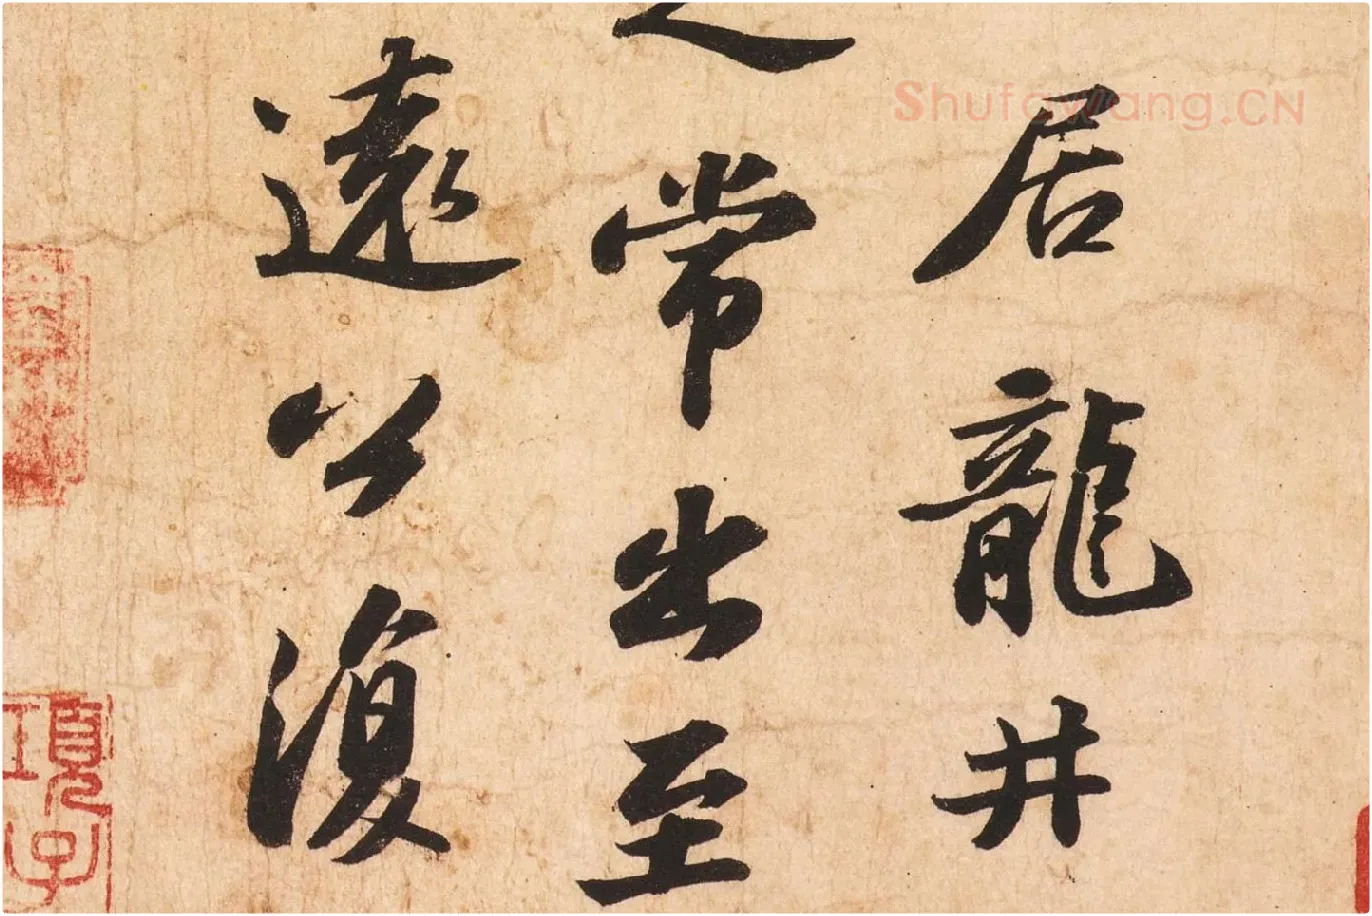 居龍井
之常出至
遠公復
Shufawang.CN
項子